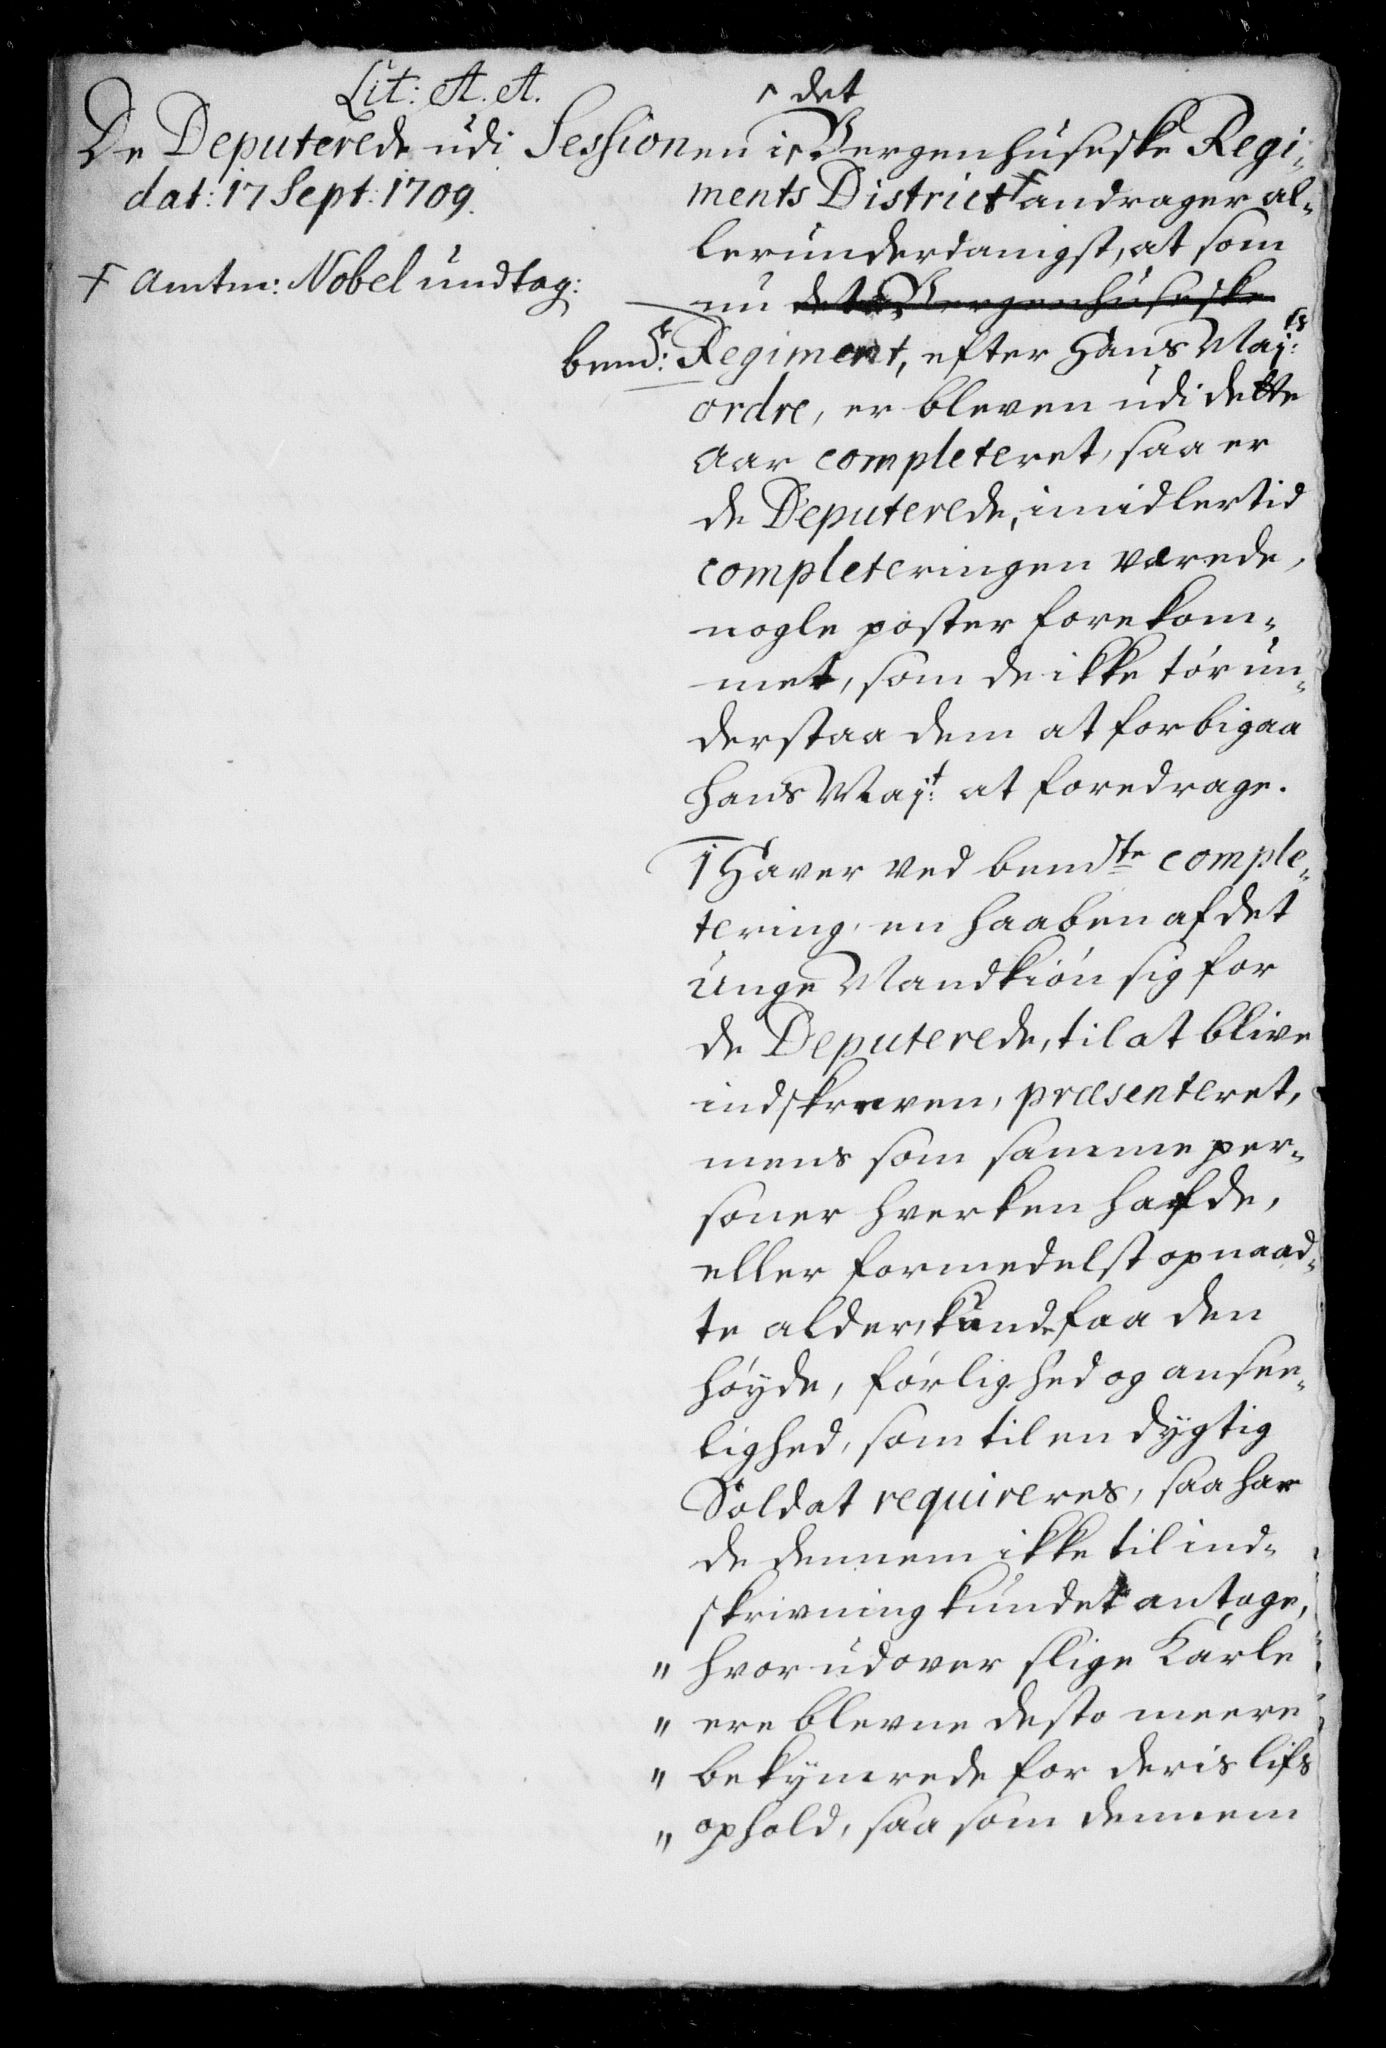 Lit: A. A.
^ det
De Deputerede udi Sessionen i ^ Bergenhuseske Regi„
dat: 17 Sept: 1709.
ments District + andrager al„
lerunderdanigst, at som
+ Amtm: Nobel undtag:
nu det Bergenhuseske
bemdte: Regiment, efter Hans Mayts:
ordre, er bleven udi dette
Aar completeret, saa er
de Deputerede, imidlertid
completeringen værede,
nogle poster forekom„
met, som de ikke tør un„
derstaa dem at forbigaa
Hans Mayt: at foredrage.
1 Haver ved bemdte comple„
tering, en haaben af det
unge Mandkiøn sig for
de Deputerede, til at blive
indskreven, præsenteret,
mens som samme per„
soner hverken hafde,
eller formedelst opnaad„
te alder, kunde faa den
høyde, førlighed og ansee„
lighed, som til en dygtig
Soldat requireres, saa har
de dennem ikke til ind„
skrivning kundet antage,
„ hvorudover slige Karle
„ ere blevne desto meere
„ bekymrede for deris lifs
„ ophold, saa som dennem